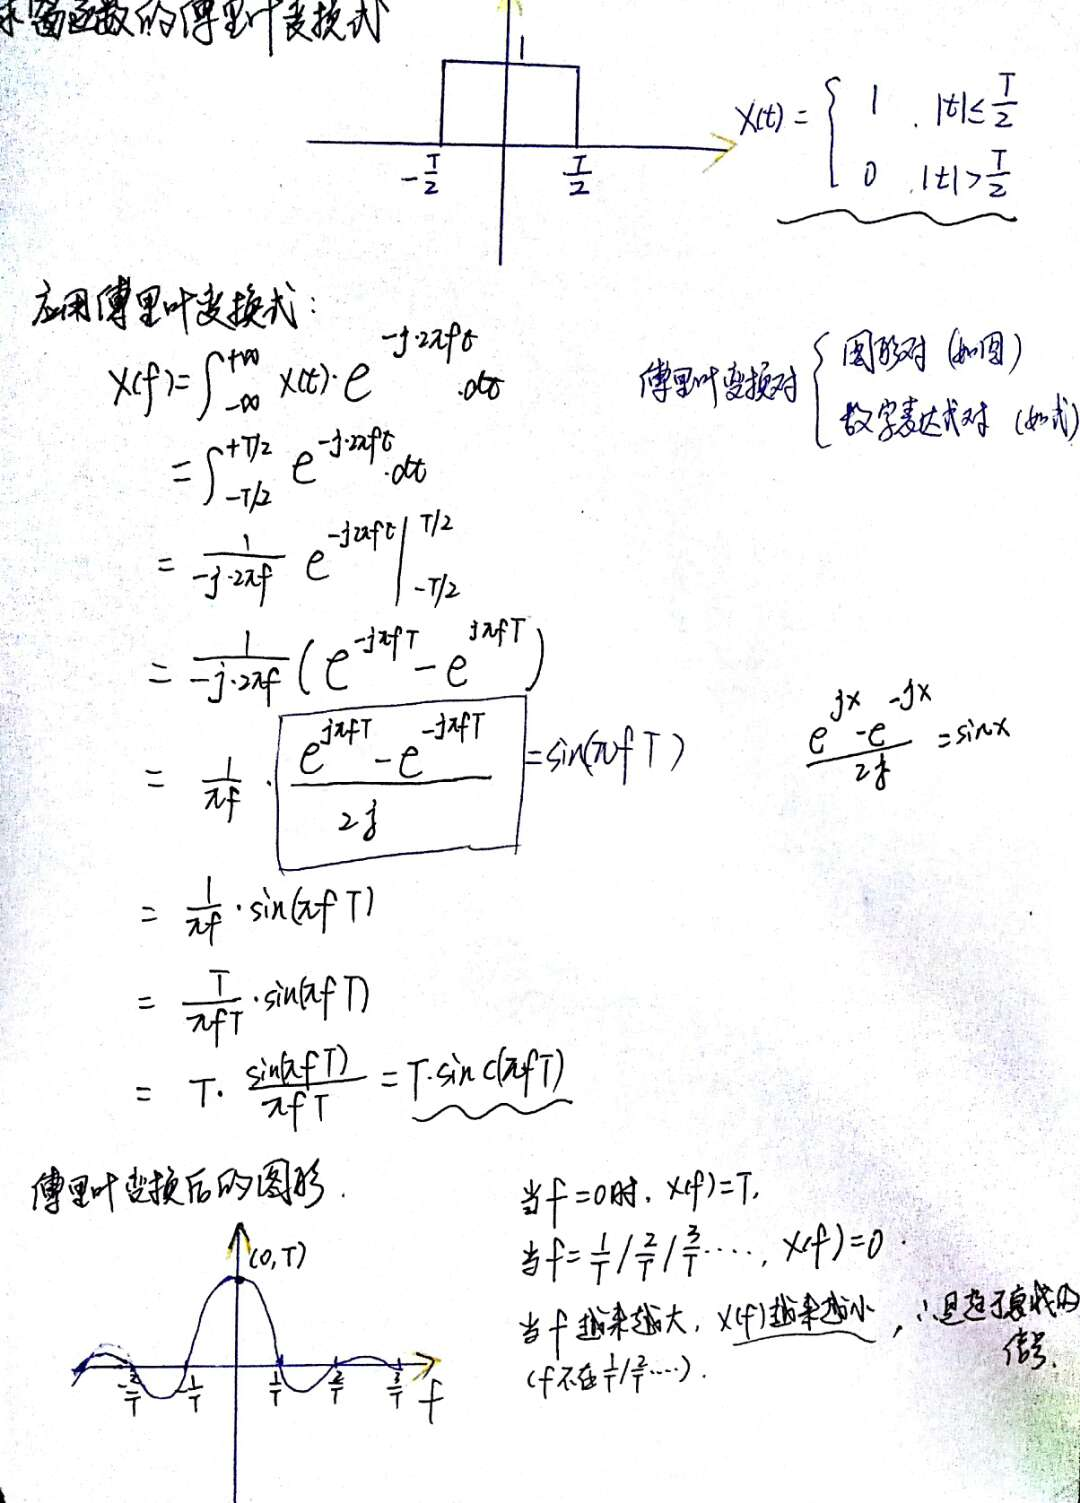 求窗函数的傅里叶变换式
1
-T/2
T/2
X(t) = { 1 , |t| ≤ T/2
0 , |t| > T/2
应用傅里叶变换式:
X(f) = ∫_{-∞}^{+∞} X(t)·e^{-j·2πft}·dt
傅里叶变换对 { 图形对 (如图)
数字表达式对 (如式)
= ∫_{-T/2}^{+T/2} e^{-j·2πft}·dt
= 1/(-j·2πf) e^{-j2πft} |_{-T/2}^{T/2}
= 1/(-j·2πf) (e^{-jπfT} - e^{jπfT})
= 1/(πf) · (e^{jπfT} - e^{-jπfT})/(2j) = sin(πfT)
(e^{jx} - e^{-jx})/(2j) = sinx
= 1/(πf) · sin(πfT)
= T/(πfT) · sin(πfT)
= T· sin(πfT)/(πfT) = T·sinc(πfT)
傅里叶变换后的图形.
(0,T)
-2/T
-1/T
1/T
2/T
3/T
f
当f=0时, X(f)=T,
当f= 1/T / 2/T / 3/T ····, X(f)=0.
当f越来越大, X(f)越来越小, ∴是趋于衰减的
信号.
(f不在 1/T / 2/T ····).